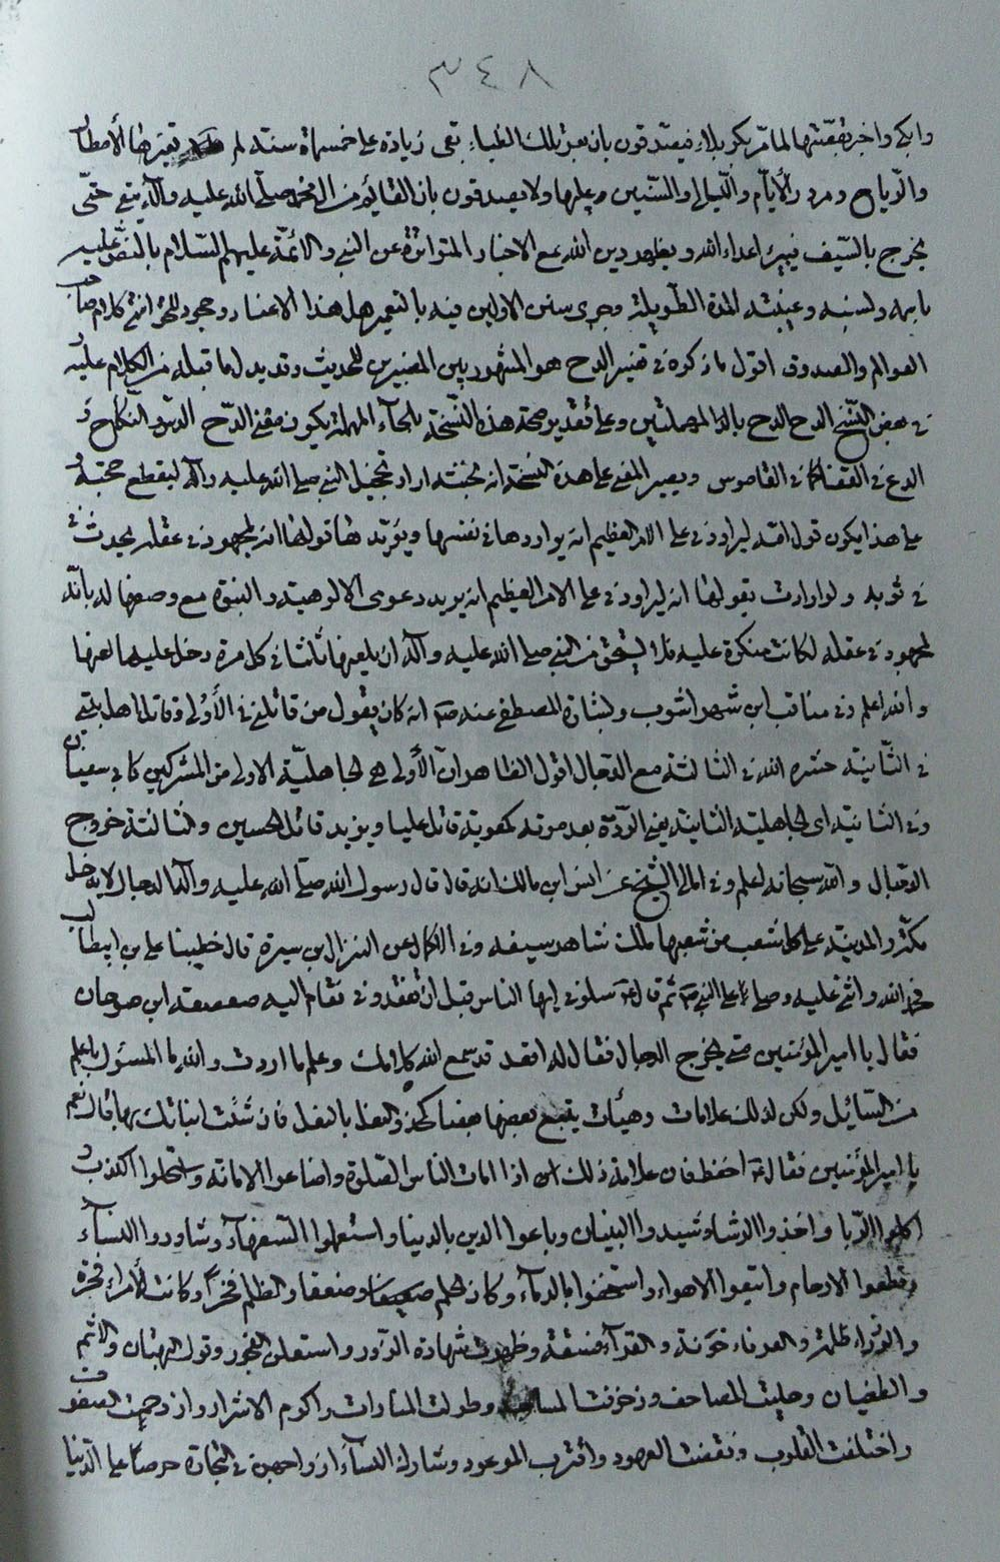 ٣٤٨
وابكى واخبر بقصتها لما مر بكربلاء فيصدقون بان بعر تلك الظباء تبقى زيادة على خمسمائة سنة لم تغيرها الأمطار
والرياح ومرور الأيام والليالى والسنين عليها ولا يصدقون بان القائم من ال محمد صلى الله عليه وآله يبقى حتى
يخرج بالسيف فيبير اعداء الله ويظهر دين الله مع الاخبار المتواترة عن النبى والائمة عليهم السلام بالنص عليه
باسمه ونسبه وغيبته المدة الطويلة وجرى سنن الاولين فيه بالتعمير هل هذا الا عناد وجحود للحق انتهى كلام صاحب
العوالم والصدوق اقول ما ذكروه فى تفسير الدح هو المشهور بين المفسرين للحديث وقد يدل ما قبله من الكلام عليه
فى بعض النسخ الدح الدح بالدال المهملتين وعلى تقدير صحة هذه النسخة بالحاء المهملة يكون معنى الدح الدس والنكاح و
الدع فى القفا كما فى القاموس ويصير المعنى على هذه النسخة انه بخبثه اراد تخجيل النبى صلى الله عليه وآله ليقطع حجته و
على هذا يكون قول امه ليراودنى على الامر العظيم اى يواردها فى نفسها ويؤيد هذا قولها انه لمجهود فى عقله يحدث
فى ثوبه ولو ارادت بقولها انه ليراودنى على الامر العظيم انه يريد دعوى الالوهية والنبوة مع وصفها له بانه
لمجهود فى عقله لكانت منكرة عليه فلا يستحق من النبى صلى الله عليه وآله ان يلعنها ثلثا فى كل مرة دخل عليها لعنها
والله اعلم وفى مناقب ابن شهراشوب وبشارة المصطفى عنه ص انه كان يقول من قاتلنى فى الأولى وقاتل اهل بيتى
فى الثانية حشره الله فى الثالثة مع الدجال اقول الظاهر ان الأولى هى الجاهلية الاولى من المشركين كابى سفيان
وفى الثانية اى الجاهلية الثانية يعنى الردة بعد موته كمعوية قاتل عليا ويزيد قاتل الحسين والثالثة خروج
الدجال والله سبحانه اعلم وفى امالى الشيخ عن انس ابن مالك انه قال قال رسول الله صلى الله عليه وآله الدجال لا يدخل
مكة والمدينة على كل شعب من شعبها ملك شاهر سيفه وفى الاكمال عن النزال بن سبرة قال خطبنا على بن ابيطالب
فحمد الله واثنى عليه وصلى على النبى ص ثم قال ع سلونى ايها الناس قبل ان تفقدونى فقام اليه صعصعة ابن صوحان
فقال يا امير المؤمنين متى يخرج الدجال فقال له اقعد قد سمع الله كلامك وعلم ما اردت والله ما المسئول باعلم
من السائل ولكن لذلك علامات وهيئات يتبع بعضها بعضا كحذو النعل بالنعل فان شئت انباتك بها قال نعم
يا امير المؤمنين فقال ع احفظ فان علامة ذلك اذا امات الناس الصلوة واضاعوا الامانة واستحلوا الكذب و
اكلوا الربا واخذوا الرشا وشيدوا البنيان وباعوا الدين بالدنيا واستعملوا السفهآء وشاوروا النسآء
وقطعوا الارحام واتبعوا الاهواء واستخفوا بالدمآء وكان الحلم ضعفا والظلم فخرا وكانت الأمراء فجرة
والوزراء ظلمة والعرفاء خونة والقرآء فسقة وظهرت شهادة الزور واستعلن الفجور وقول البهتان والاثم
والطغيان وحليت المصاحف وزخرفت المساجد وطولت المنارات واكرم الاشرار وازدحمت الصفوف
واختلفت القلوب ونقضت العهود واقترب الموعود وشارك النسآء ازواجهن فى التجارة حرصا على الدنيا